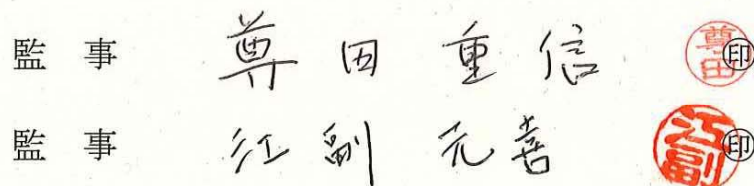 監事 尊田重信 尊田 ㊞
監事 江副元喜 江副 ㊞